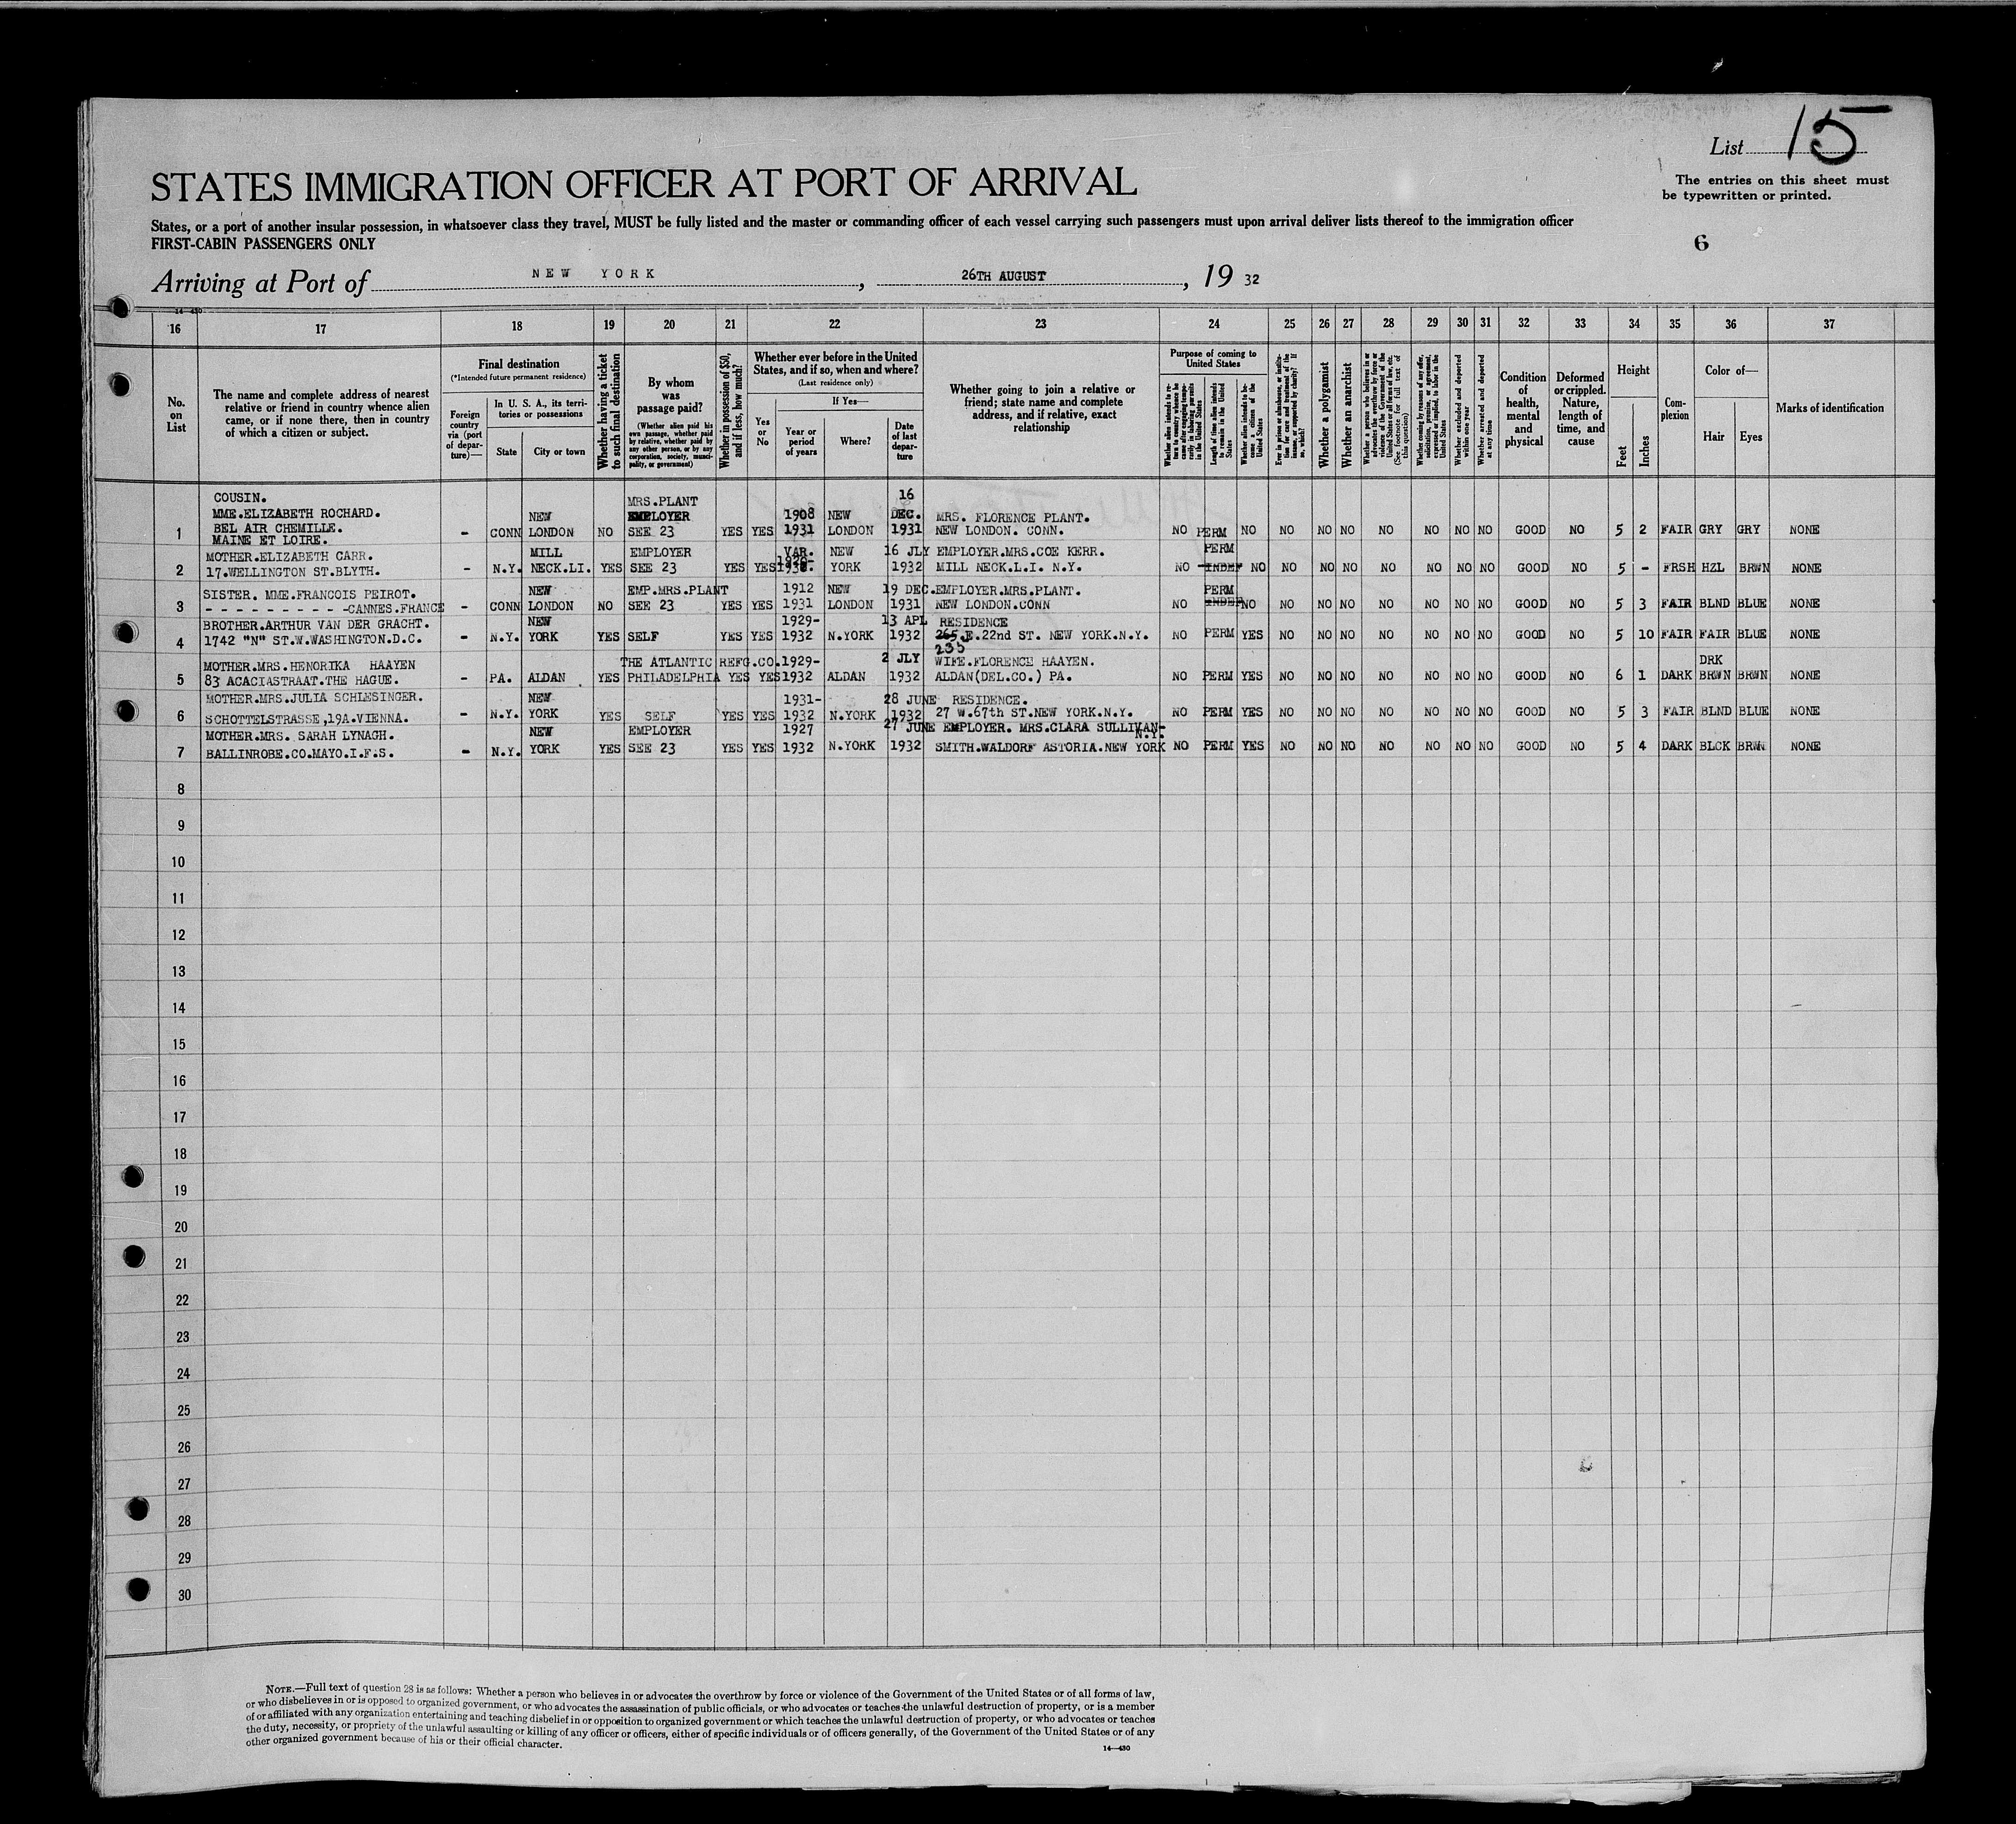 List 15
The entries on this sheet must
be typewritten or printed.
STATES IMMIGRATION OFFICER AT PORT OF ARRIVAL
States, or a port of another insular possession, in whatsoever class they travel, MUST be fully listed and the master or commanding officer of each vessel carrying such passengers must upon arrival deliver lists thereof to the immigration officer
FIRST-CABIN PASSENGERS ONLY
6
Arriving at Port of NEW YORK, 26TH AUGUST, 19 32
14-430
16 17 18 19 20 21 22 23 24 25 26 27 28 29 30 31 32 33 34 35 36 37
No. on List
The name and complete address of nearest relative or friend in country whence alien came, or if none there, then in country of which a citizen or subject.
Final destination
(*Intended future permanent residence)
Foreign country via (port of departure)—
In U. S. A., its territories or possessions
State
City or town
Whether having a ticket to such final destination
By whom was passage paid?
(Whether alien paid his own passage, whether paid by relative, whether paid by any other person, or by any corporation, society, municipality, or government)
Whether in possession of $50, and if less, how much?
Whether ever before in the United States, and if so, when and where?
(Last residence only)
Yes or No
If Yes—
Year or period of years
Where?
Date of last departure
Whether going to join a relative or friend; state name and complete address, and if relative, exact relationship
Purpose of coming to United States
Whether alien intends to return to country whence he came after engaging temporarily in laboring pursuits in the United States
Length of time alien intends to remain in the United States
Whether alien intends to become a citizen of the United States
Ever in prison or almshouse, or institution for care and treatment of the insane, or supported by charity? If so, which?
Whether a polygamist
Whether an anarchist
Whether a person who believes in or advocates the overthrow by force or violence of the Government of the United States or all forms of law, etc. (See footnote for full text of this question)
Whether coming by reasons of any offer, solicitation, promise, or agreement, expressed or implied, to labor in the United States
Whether excluded and deported within one year
Whether arrested and deported at any time
Condition of health, mental and physical
Deformed or crippled. Nature, length of time, and cause
Height
Feet
Inches
Complexion
Color of—
Hair
Eyes
Marks of identification
COUSIN. MRS.PLANT 16
MME.ELIZABETH ROCHARD. NEW EMPLOYER 1908 NEW DEC. MRS. FLORENCE PLANT.
1 BEL AIR CHEMILLE. - CONN LONDON NO SEE 23 YES YES 1931 LONDON 1931 NEW LONDON. CONN. NO PERM NO NO NO NO NO NO NO NO GOOD NO 5 2 FAIR GRY GRY NONE
MAINE ET LOIRE.
MOTHER.ELIZABETH CARR. MILL EMPLOYER VAR. NEW 16 JLY EMPLOYER.MRS.COE KERR. PERM
2 17.WELLINGTON ST.BLYTH. - N.Y. NECK.LI. YES SEE 23 YES YES YORK 1932 MILL NECK.L.I. N.Y. NO INDEF NO NO NO NO NO NO NO NO GOOD NO 5 - FRSH HZL BRWN NONE
SISTER. MME.FRANCOIS PEIROT. NEW EMP.MRS.PLANT 1912 NEW 19 DEC.EMPLOYER.MRS.PLANT. PERM
3 - - - - - - - - - -CANNES.FRANCE - CONN LONDON NO SEE 23 YES YES 1931 LONDON 1931 NEW LONDON.CONN NO INDEF NO NO NO NO NO NO NO NO GOOD NO 5 3 FAIR BLND BLUE NONE
BROTHER.ARTHUR VAN DER GRACHT. NEW 1929- 13 APL RESIDENCE
4 1742 "N" ST.W.WASHINGTON.D.C. - N.Y. YORK YES SELF YES YES 1932 N.YORK 1932 265 E.22nd ST. NEW YORK.N.Y. NO PERM YES NO NO NO NO NO NO NO GOOD NO 5 10 FAIR FAIR BLUE NONE
235
MOTHER.MRS.HENORIKA HAAYEN THE ATLANTIC REFG.CO.1929- 2 JLY WIFE.FLORENCE HAAYEN. DRK
5 83 ACACIASTRAAT.THE HAGUE. - PA. ALDAN YES PHILADELPHIA YES YES 1932 ALDAN 1932 ALDAN(DEL.CO.) PA. NO PERM YES NO NO NO NO NO NO NO GOOD NO 6 1 DARK BRWN BRWN NONE
MOTHER.MRS.JULIA SCHLESINGER. NEW 1931- 28 JUNE RESIDENCE.
6 SCHOTTELSTRASSE,19A.VIENNA. - N.Y. YORK YES SELF YES YES 1932 N.YORK 1932 27 W.67th ST.NEW YORK.N.Y. NO PERM YES NO NO NO NO NO NO NO GOOD NO 5 3 FAIR BLND BLUE NONE
MOTHER.MRS. SARAH LYNAGH. NEW EMPLOYER 1927 27 JUNE EMPLOYER. MRS.CLARA SULLIVAN-
N.Y.
7 BALLINROBE.CO.MAYO.I.F.S. - N.Y. YORK YES SEE 23 YES YES 1932 N.YORK 1932 SMITH.WALDORF ASTORIA.NEW YORK NO PERM YES NO NO NO NO NO NO NO GOOD NO 5 4 DARK BLCK BRWN NONE
8
9
10
11
12
13
14
15
16
17
18
19
20
21
22
23
24
25
26
27
28
29
30
NOTE.—Full text of question 28 is as follows: Whether a person who believes in or advocates the overthrow by force or violence of the Government of the United States or of all forms of law,
or who disbelieves in or is opposed to organized government, or who advocates the assassination of public officials, or who advocates or teaches the unlawful destruction of property, or is a member
of or affiliated with any organization entertaining and teaching disbelief in or opposition to organized government or which teaches the unlawful destruction of property, or who advocates or teaches
the duty, necessity, or propriety of the unlawful assaulting or killing of any officer or officers, either of specific individuals or of officers generally, of the Government of the United States or of any
other organized government because of his or their official character.
14—430